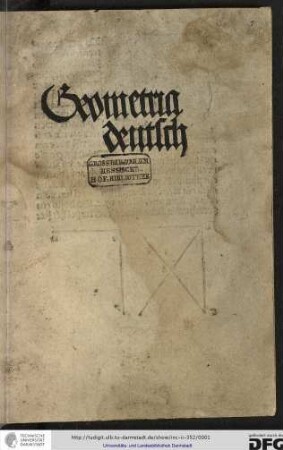 Geometria
deutsch
GROSSHERZOGLICH
HESSISCHE
HOFBIBLIOTHEK
TECHNISCHE
UNIVERSITÄT
DARMSTADT
http://tudigit.ulb.tu-darmstadt.de/show/inc-ii-352/0001
Universitäts- und Landesbibliothek Darmstadt
gefördert durch die
DFG